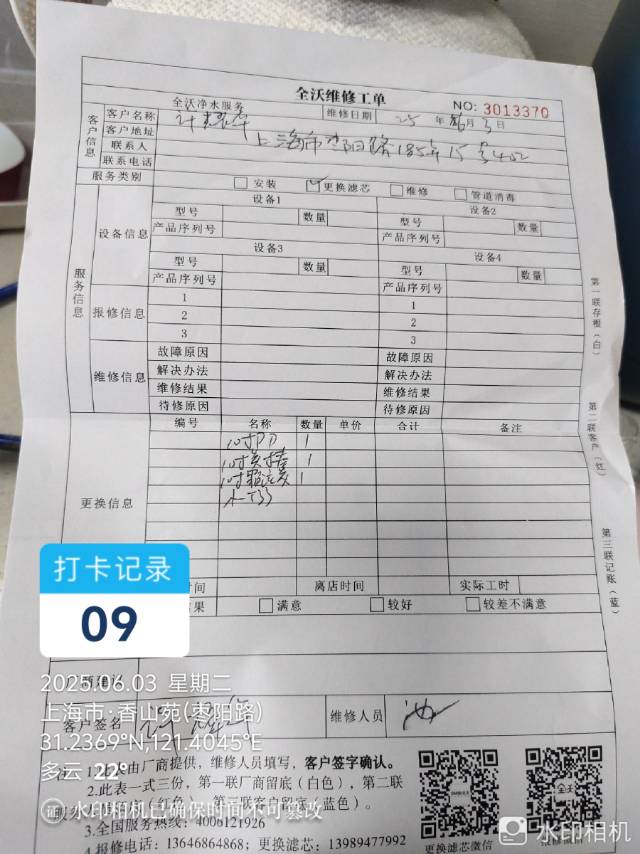 全沃维修工单
全沃净水服务
NO: 3013370
维修日期 25 年 6月 3日
客户信息
客户名称
客户地址 上海市枣阳路185弄15号402
联系人
联系电话
服务类别 安装 更换滤芯 维修 管道消毒
服务信息
设备信息
设备1 设备2
型号 数量 型号 数量
产品序列号 产品序列号
设备3 设备4
型号 数量 型号 数量
产品序列号 产品序列号
报修信息
1 1
2 2
3 3
维修信息
故障原因 故障原因
解决办法 解决办法
维修结果 维修结果
待修原因 待修原因
更换信息
编号 名称 数量 单价 合计 备注
10寸PP 1
10寸 1
10寸 1
第一联存根(白)
第二联客户(红)
第三联记账(蓝)
时间 离店时间 实际工时
结果 满意 较好 较差不满意
建议
客户签名 维修人员
注
由厂商提供，维修人员填写，客户签字确认。
2.此表一式三份，第一联厂商留底（白色），第二联
客户留底（蓝色）。
3.全国服务热线：4006121926
4.报修电话：13646864868；更换滤芯：13989477992
更换滤芯微信
打卡记录
09
2025.06.03 星期二
上海市·香山苑(枣阳路)
31.2369°N,121.4045°E
多云 22°
证 水印相机已确保时间不可篡改
水印相机